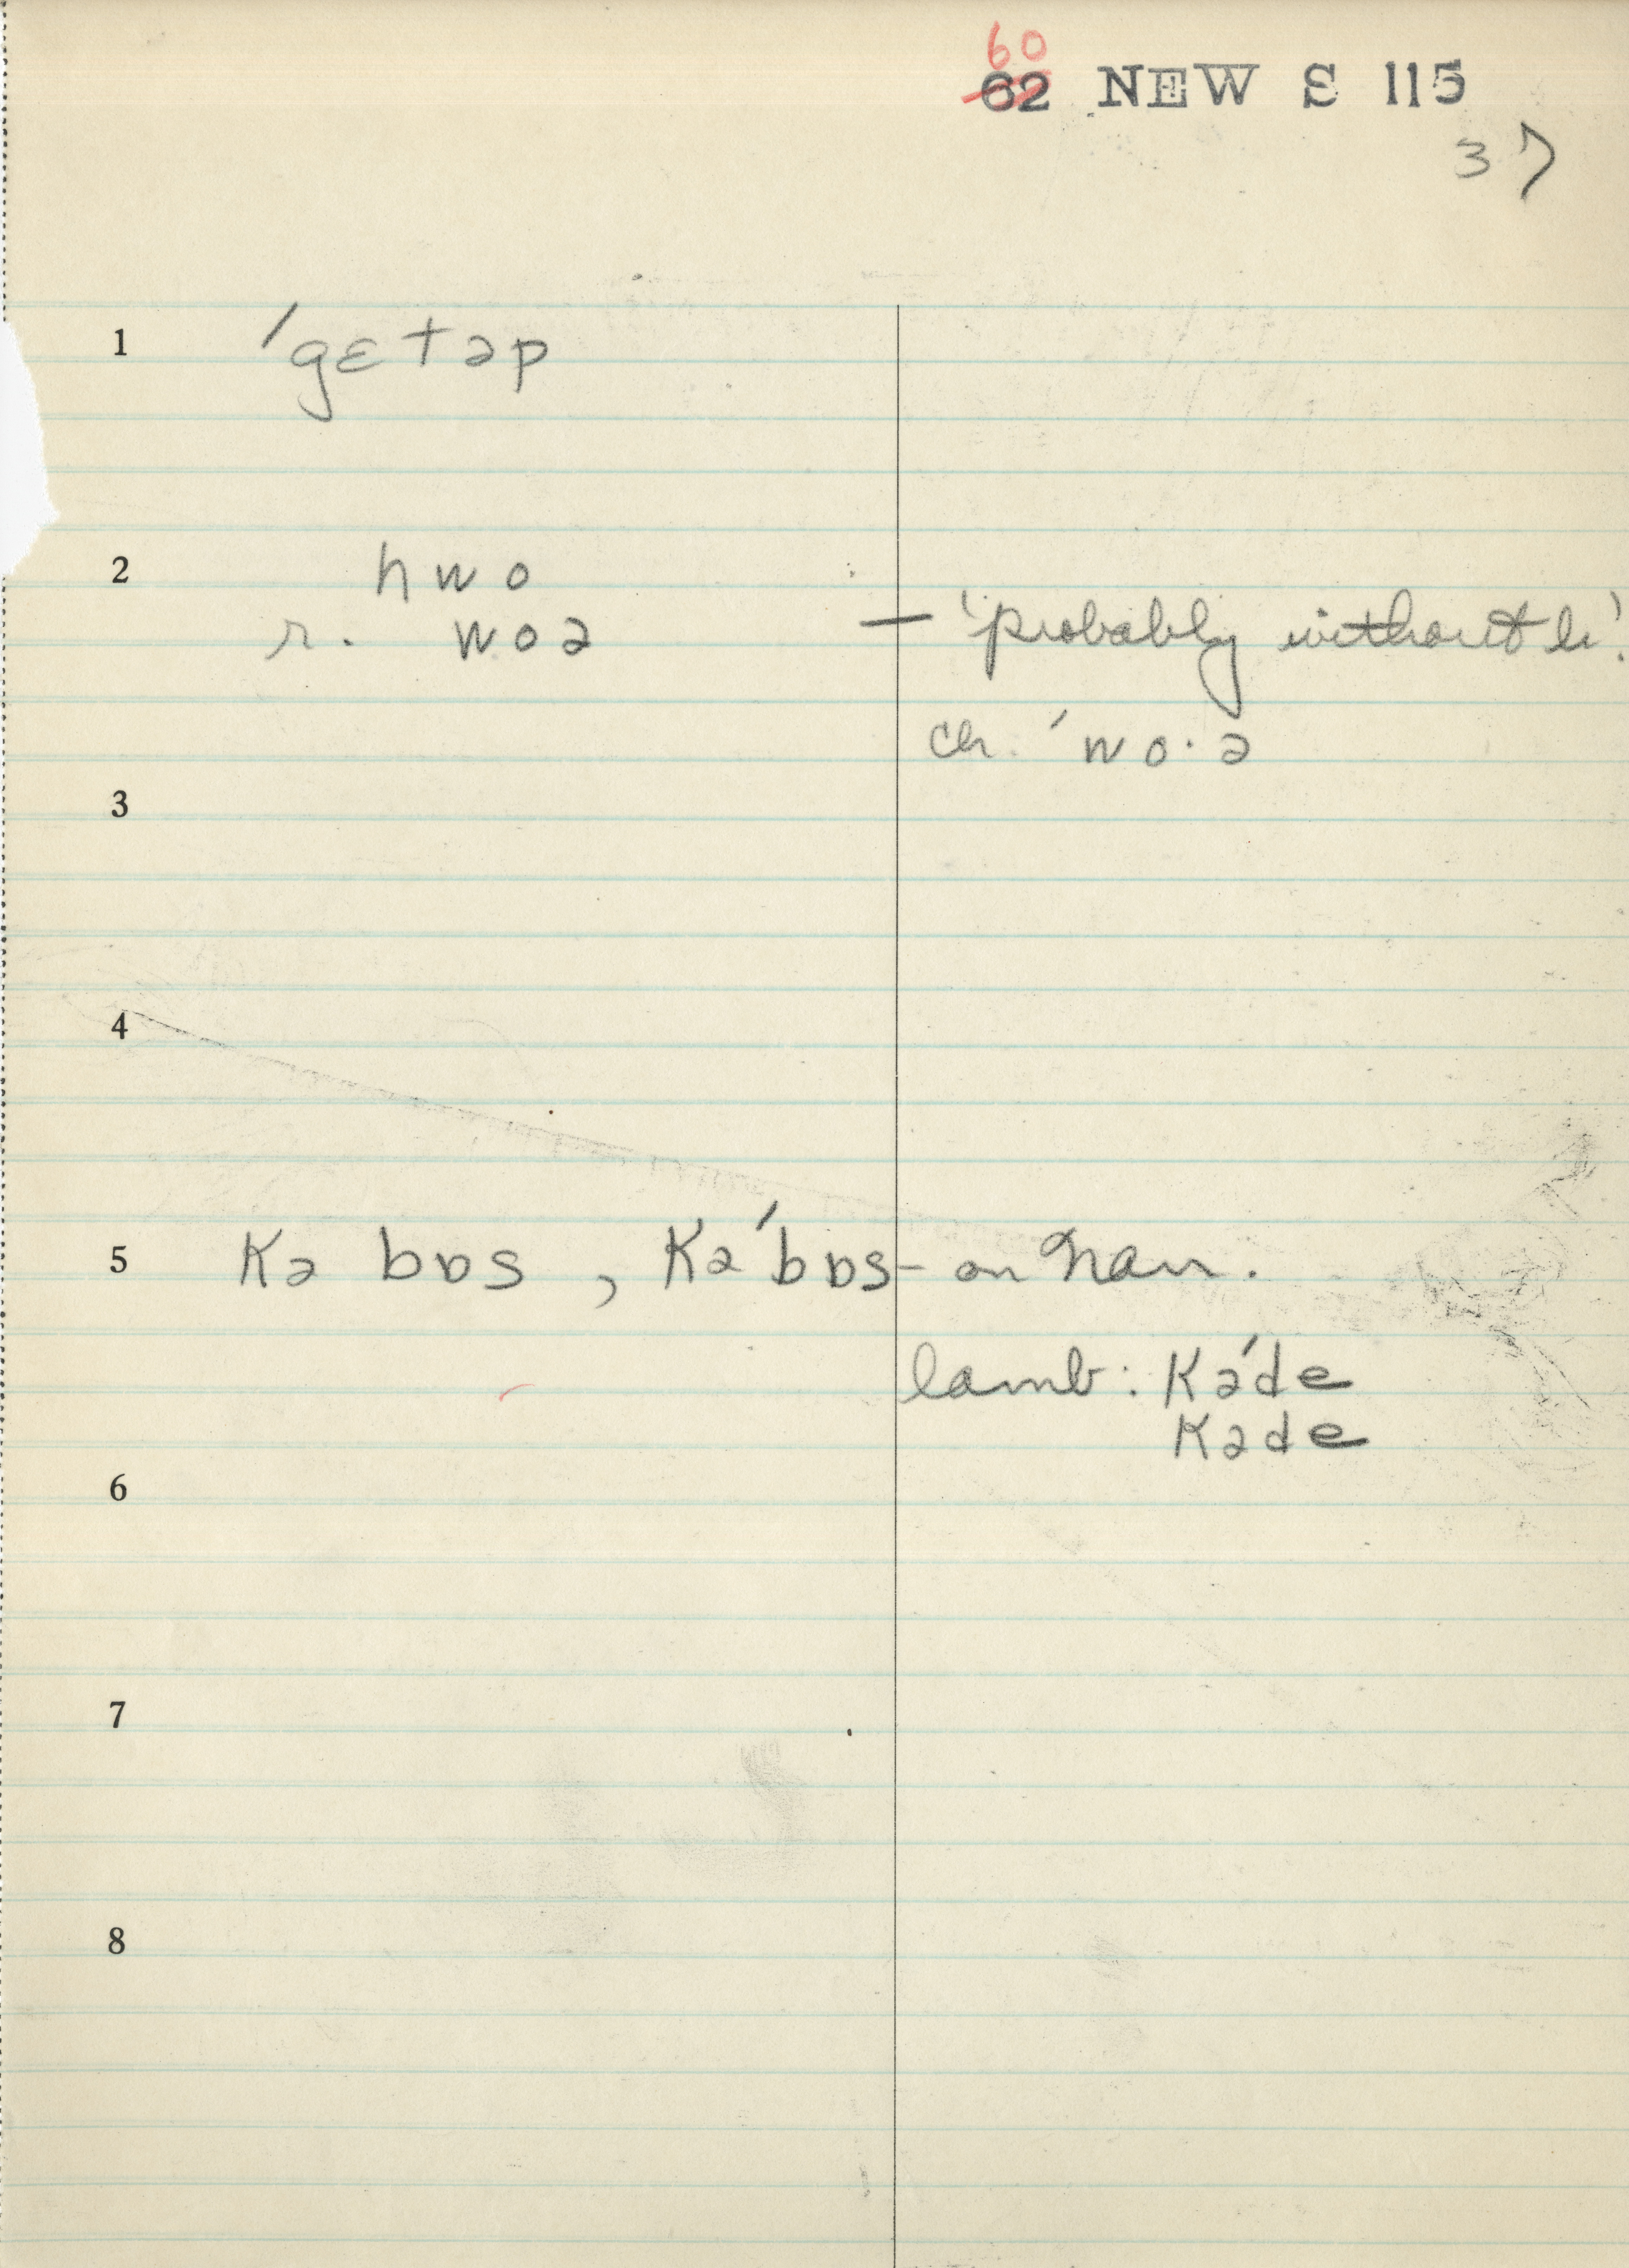 60
62 NEW S 115
37
1 ˈgɛtəp
2 hwo
r. woə — 'probably without h'.
ch. ˈwo·ə
3
4
5 kə bɒs , kəˈbɒs – on Nan.
lamb: kəˈde
kəde
6
7
8